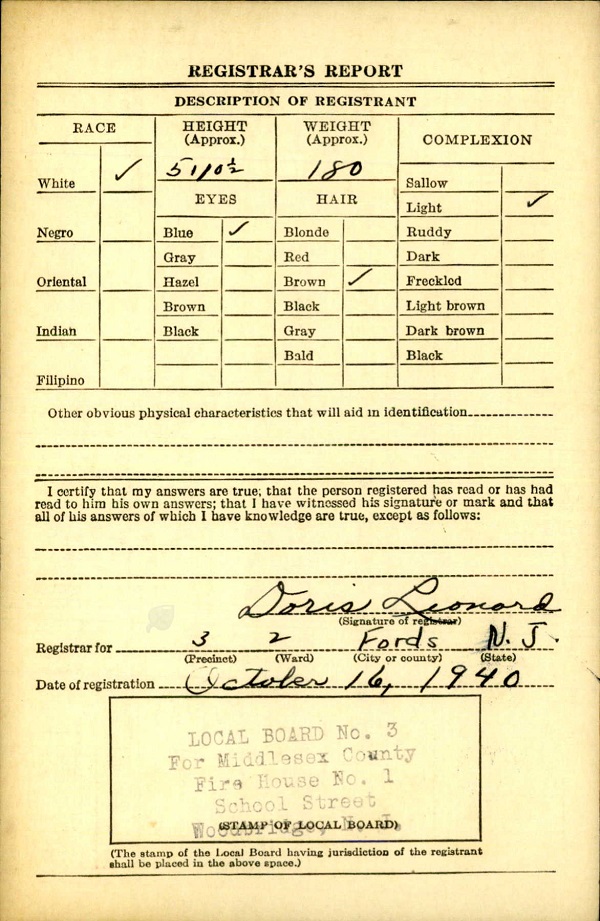 REGISTRAR'S REPORT
DESCRIPTION OF REGISTRANT
RACE
HEIGHT
(Approx.)
WEIGHT
(Approx.)
COMPLEXION
White ✓
5 10½
180
Sallow
EYES
HAIR
Light ✓
Negro
Blue ✓
Blonde
Ruddy
Gray
Red
Dark
Oriental
Hazel
Brown ✓
Freckled
Brown
Black
Light brown
Indian
Black
Gray
Dark brown
Bald
Black
Filipino
Other obvious physical characteristics that will aid in identification
I certify that my answers are true; that the person registered has read or has had
read to him his own answers; that I have witnessed his signature or mark and that
all of his answers of which I have knowledge are true, except as follows:
Doris Leonard
(Signature of registrar)
Registrar for 3 2 Fords N. J.
(Precinct) (Ward) (City or county) (State)
Date of registration October 16, 1940
LOCAL BOARD No. 3
For Middlesex County
Fire House No. 1
School Street
(STAMP OF LOCAL BOARD)
Woodbridge, N. J.
(The stamp of the Local Board having jurisdiction of the registrant
shall be placed in the above space.)